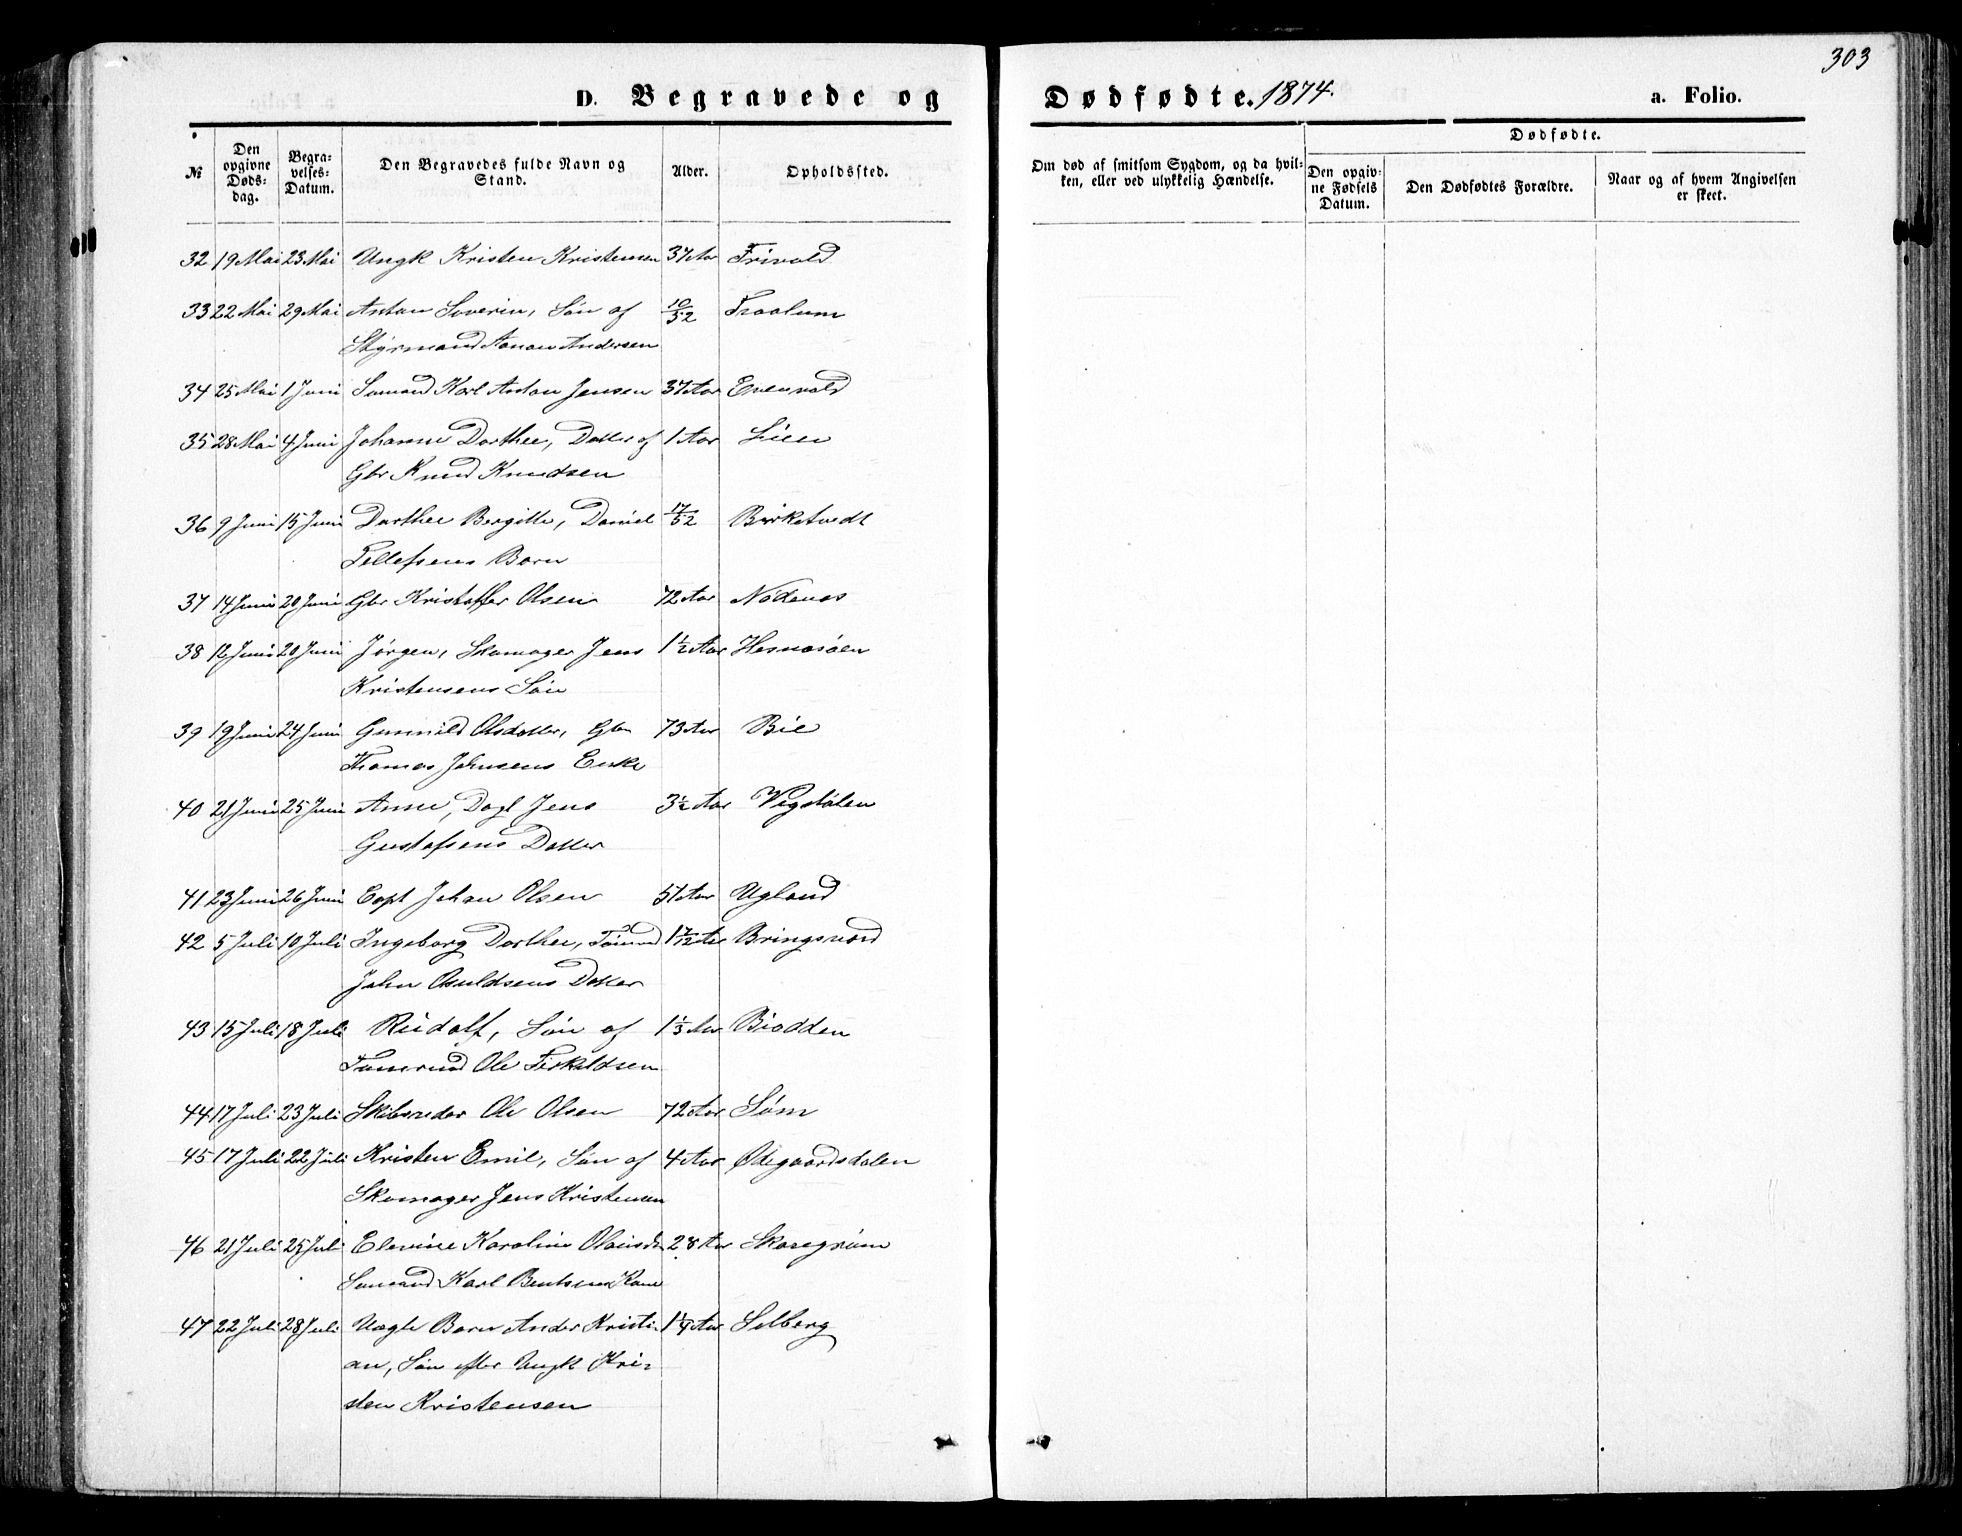 303
D. Begravede og Dødfødte. 1874. a. Folio.
№
Den opgivne Døds-dag.
Begra-velses-Datum.
Den Begravedes fulde Navn og Stand.
Alder.
Opholdssted.
Om død af smitsom Sygdom, og da hvil-ken, eller ved ulykkelig Hændelse.
Dødfødte.
Den opgiv-ne Fødsels Datum.
Den Dødfødtes Forældre.
Naar og af hvem Angivelsen er skeet.
32 19 Mai 23 Mai Ungk Kristen Kristensen 37 Aar Frivold
33 22 Mai 29 Mai Anton Severin, Søn af 10/52 Traalum
Styrmand Aanon Andersen
34 25 Mai 1 Juni Sømand Karl Anton Jensen 37 Aar Evenvold
35 28 Mai 4 Juni Johanne Dorthee, Datter af 1 Aar Lien
Gbr Knud Knudsen
36 9 Juni 15 Juni Dorthee Bergitte, Daniel 17/52 Birketvedt
Tellefsens Barn
37 14 Juni 20 Juni Gbr Kristoffer Olsen 72 Aar Nødenes
38 12 Juni 20 Juni Jørgen, Skomager Jens 1½ Aar Hesnesøen
Kristensens Søn
39 19 Juni 24 Juni Gunnild Olsdatter, Gbr 73 Aar Bie
Thomas Johnsens Enke
40 21 Juni 25 Juni Anne, Dagl Jens 3½ Aar Vigstølen
Gustafsens Datter
41 23 Juni 26 Juni Capt Johan Olsen 51 Aar Ugland
42 5 Juli 10 Juli Ingeborg Dorthee, Tømmd 1 7/12 Ar Bringsværd
John Osuldsens Datter
43 15 Juli 18 Juli Rudolf, Søn af 1⅓ Aar Biodden
Tømrmd Ole Terkeldsen
44 17 Juli 23 Juli Skibsreder Ole Olsen 72 Aar Søm
45 17 Juli 22 Juli Kristen Emil, Søn af 4 Aar Ødegaardsdalen
Skomager Jens Kristensen
46 21 Juli 25 Juli Elevine Karoline Olausdr 28 Aar Skaregrøm
Sømand Karl Bentsens Kone
47 22 Juli 28 Juli Uægte Barn Anders Kristi- 1¼ Aar Selberg
an, Søn efter Ungk Kri-
sten Kristensen